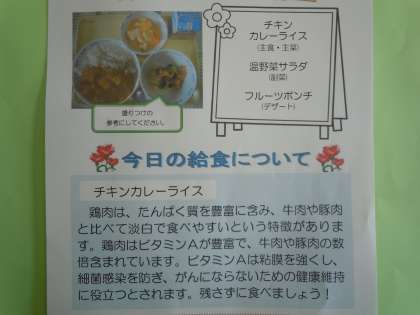 チキン
カレーライス
(主食・主菜)
温野菜サラダ
(副菜)
フルーツポンチ
(デザート)
盛りつけの
参考にしてください。
今日の給食について
チキンカレーライス
鶏肉は、たんぱく質を豊富に含み、牛肉や豚肉
と比べて淡白で食べやすいという特徴がありま
す。鶏肉はビタミンAが豊富で、牛肉や豚肉の数
倍含まれています。ビタミンAは粘膜を強くし、
細菌感染を防ぎ、がんにならないための健康維持
に役立つとされます。残さずに食べましょう！